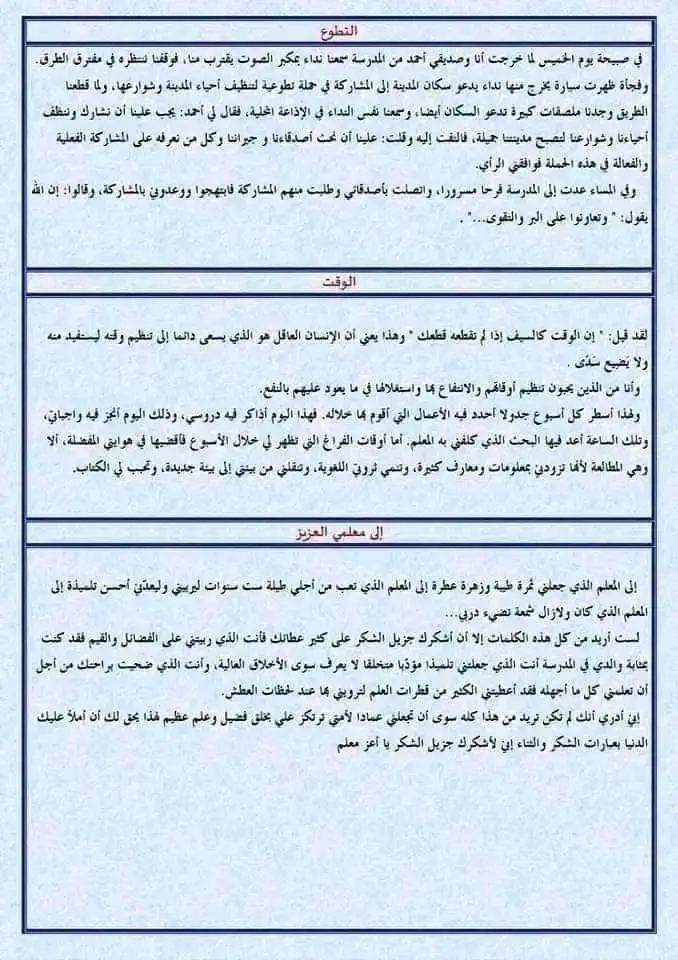 التطوع
في صبيحة يوم الخميس لما خرجت أنا وصديقي أحمد من المدرسة سمعنا نداء بمكبر الصوت يقترب منا، فوقفنا ننتظره في مفترق الطرق.
وفجأة ظهرت سيارة يخرج منها نداء يدعو سكان المدينة إلى المشاركة في حملة تطوعية لتنظيف أحياء المدينة وشوارعها، ولما قطعنا
الطريق وجدنا ملصقات كبيرة تدعو السكان أيضا، وسمعنا نفس النداء في الإذاعة المحلية، فقال لي أحمد: يجب علينا أن نشارك وننظف
أحياءنا وشوارعنا لتصبح مدينتنا جميلة، فالتفت إليه وقلت: علينا أن نحث أصدقاءنا و جيراننا وكل من نعرفه على المشاركة الفعلية
والفعالة في هذه الحملة فوافقني الرأي.
وفي المساء عدت إلى المدرسة فرحا مسرورا، واتصلت بأصدقائي وطلبت منهم المشاركة فابتهجوا ووعدوني بالمشاركة، وقالوا: إن الله
يقول: " وتعاونوا على البر والتقوى..." .
الوقت
لقد قيل: " إن الوقت كالسيف إذا لم تقطعه قطعك " وهذا يعني أن الإنسان العاقل هو الذي يسعى دائما إلى تنظيم وقته ليستفيد منه
ولا يَضيع سَدًى .
وأنا من الذين يحبون تنظيم أوقاتهم والانتفاع بها واستغلالها في ما يعود عليهم بالنفع.
ولهذا أسطر كل أسبوع جدولا أحدد فيه الأعمال التي أقوم بها خلاله. فهذا اليوم أذاكر فيه دروسي، وذلك اليوم أنجز فيه واجباتي،
وتلك الساعة أعد فيها البحث الذي كلفني به المعلم. أما أوقات الفراغ التي تظهر لي خلال الأسبوع فأقضيها في هوايتي المفضلة، ألا
وهي المطالعة لأنها تزودني بمعلومات ومعارف كثيرة، وتنمي ثروتي اللغوية، وتنقلني من بيئتي إلى بيئة جديدة، وتحبب لي الكتاب.
إلى معلمي العزيز
إلى المعلم الذي جعلني ثمرة طيبة وزهرة عطرة إلى المعلم الذي تعب من أجلي طيلة ست سنوات ليربيني وليعدّني أحسن تلميذة إلى
المعلم الذي كان ولازال شمعة تضيء دربي...
لست أريد من كل هذه الكلمات إلا أن أشكرك جزيل الشكر على كثير عطائك فأنت الذي ربيتني على الفضائل والقيم فقد كنت
بمثابة والدي في المدرسة أنت الذي جعلتني تلميذا مؤدّبا متخلقا لا يعرف سوى الأخلاق العالية، وأنت الذي ضحيت براحتك من أجل
أن تعلمني كل ما أجهله فقد أعطيتني الكثير من قطرات العلم لترويني بها عند لحظات العطش.
إنّي أدري أنك لم تكن تريد من هذا كله سوى أن تجعلني عمادا لأمتي ترتكز علي بخلق فضيل وعلم عظيم لهذا يحق لك أن أملأ عليك
الدنيا بعبارات الشكر والثناء إنّي لأشكرك جزيل الشكر يا أعز معلم